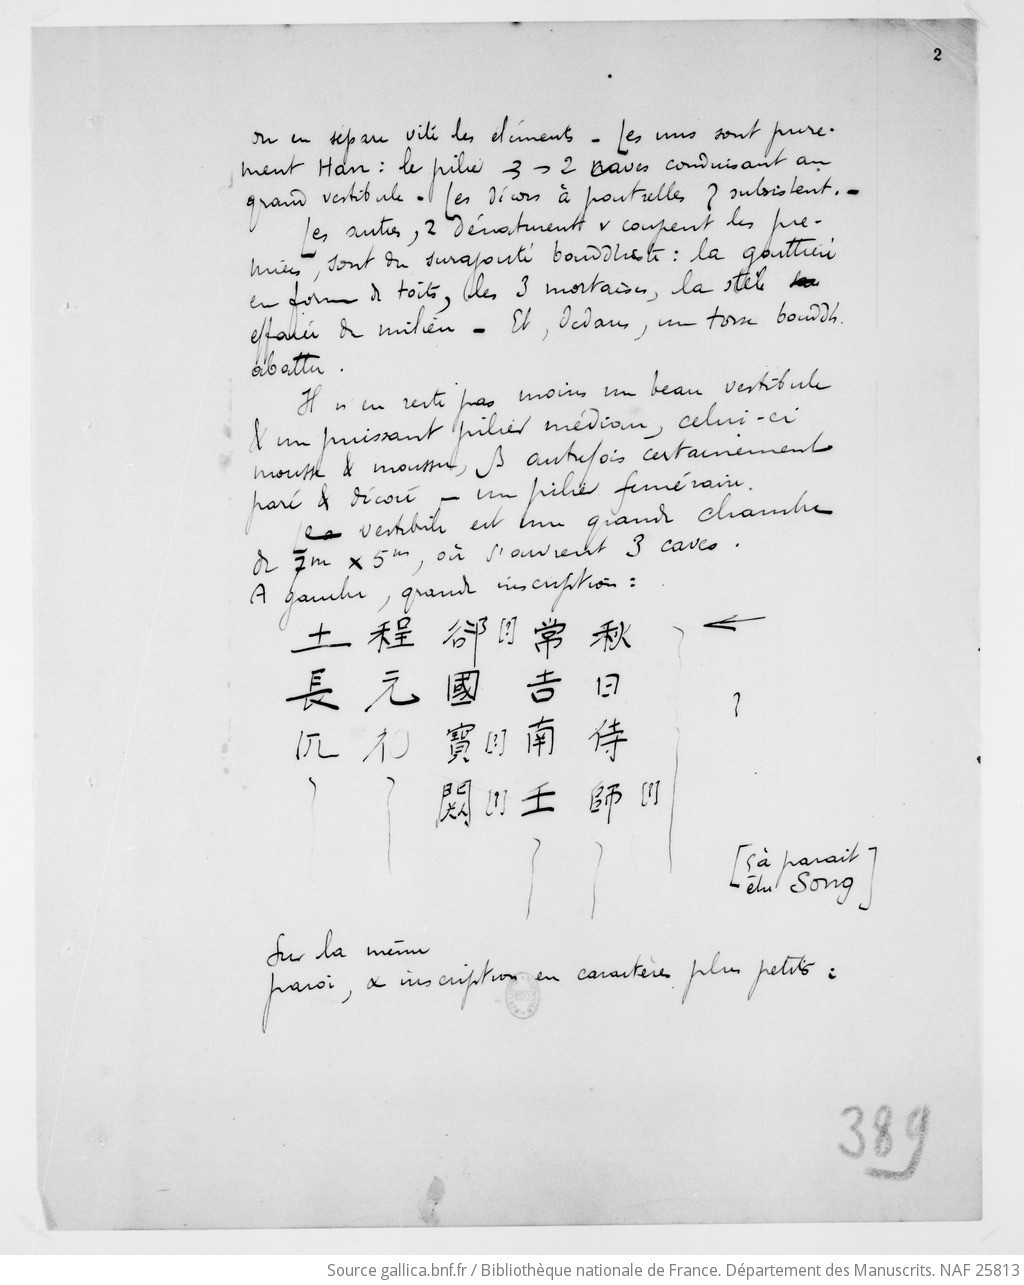 2
on en sépare vite les éléments – Les uns sont pure-
ment Han : le pilier 2 caves conduisant au
grand vestibule – Les décors à poutrelles y subsistent. –
Les autres, dénaturent & coupent les pre-
miers, sont du surajouté bouddhiste : la gouttière
en forme de toits, les 3 mortaises, la stèle
effacée du milieu – Et, dedans, un torse bouddh.
abattu.
Il n'en reste pas moins un beau vestibule
& un puissant pilier médian, celui-ci
mousse & moussu, autrefois certainement
paré & décoré – un pilier funéraire.
Le vestibule est une grande chambre
de 7m x 5m, où s'ouvrent 3 caves.
A gauche, grande inscription :
土 程 郤 [?] 常 秋
長 元 國 吉 日
寶 [?] 南 侍
闕 [?] 王 師 [?]
?
[çà parait
être Song]
Sur la même
paroi, inscription en caractères plus petits :
389
Source gallica.bnf.fr / Bibliothèque nationale de France. Département des Manuscrits. NAF 25813